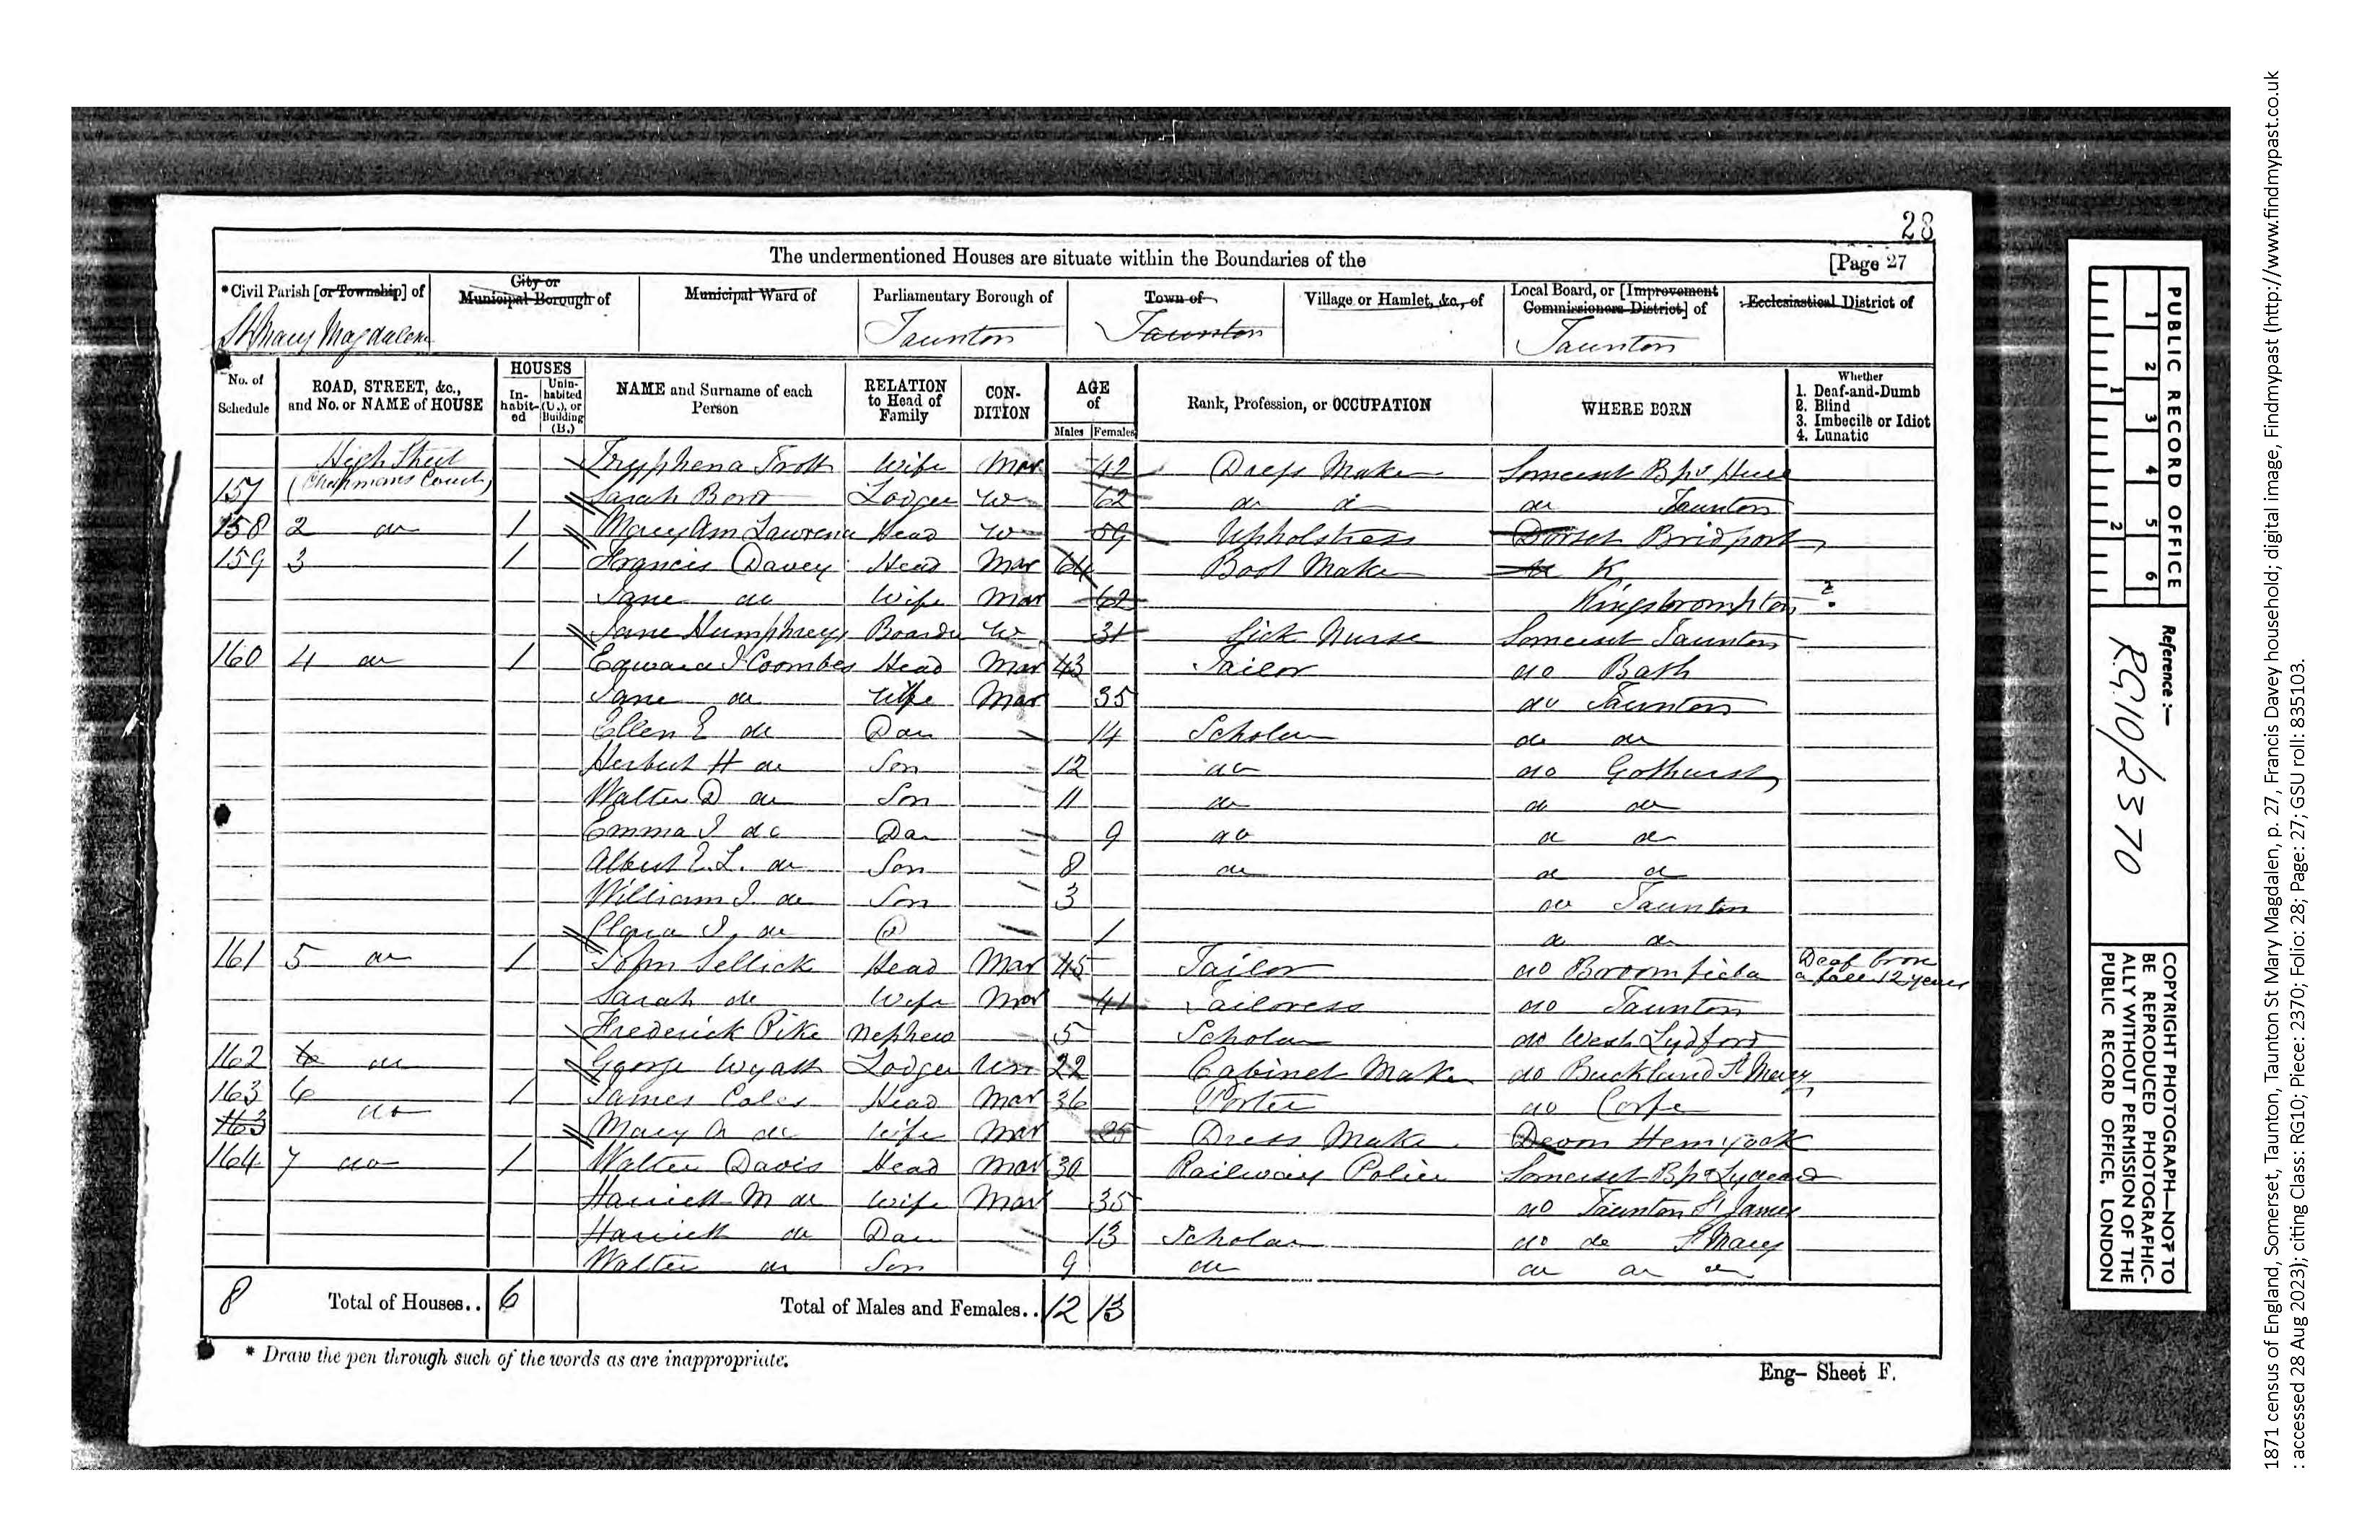 28
The undermentioned Houses are situate within the Boundaries of the
[Page 27
*Civil Parish [or Township] of
City or Municipal Borough of
Municipal Ward of
Parliamentary Borough of
Town of
Village or Hamlet, &c., of
Local Board, or [Improvement Commissioners District] of
Ecclesiastical District of
St Mary Magdalene
Taunton
Taunton
Taunton
No. of Schedule
ROAD, STREET, &c., and No. or NAME of HOUSE
HOUSES
In-habit-ed
Unin-habited (U.), or Building (B.)
NAME and Surname of each Person
RELATION to Head of Family
CON-DITION
AGE of
Males
Females
Rank, Profession, or OCCUPATION
WHERE BORN
Whether
1. Deaf-and-Dumb
2. Blind
3. Imbecile or Idiot
4. Lunatic
High Street Tryphena Trott Wife Mar 42 Dress Maker Somerset Bps Hull
157 (Chapmans Court) Sarah Lodger W 62 do do do Taunton
158 2 do 1 Mary Ann Lawrence Head W 59 Upholstress Dorset Bridport
159 3 1 Francis Davey Head Mar 64 Boot Maker do K
Jane do Wife Mar 62 Kingsbrompton ?
Jane Humphreys Boarder W 31 Sick Nurse Somerset Taunton
160 4 do 1 Edward J Coombes Head Mar 43 Tailor do Bath
Jane do Wife Mar 35 do Taunton
Ellen E do Dau 14 Scholar do do
Herbert H do Son 12 do do Gothurst
Walter D do Son 11 do do do
Emma J do Da 9 do do do
Albert E. L. do Son 8 do do do
William J. do Son 3 do Taunton
Clara J. do D 1 do do
161 5 do 1 John Sellick Head Mar 45 Tailor do Broomfield Deaf from a fall 12 years
Sarah do Wife Mar 41 Tailoress do Taunton
Frederick Pike Nephew 5 Scholar do West Lydford
162 6 do George Wyatt Lodger Un 22 Cabinet Maker do Buckland St Mary
163 6 do 1 James Coles Head Mar 36 Porter do Corfe
163 Mary A do Wife Mar 25 Dress Maker Devon Hemyock
164 7 do 1 Walter Davis Head Mar 30 Railway Police Somerset Bps Lydeard
Harriett M do Wife Mar 35 do Taunton St James
Harriett do Dau 13 Scholar do do St Mary
Walter do Son 9 do do do do
8 Total of Houses.. 6 Total of Males and Females.. 12 13
* Draw the pen through such of the words as are inappropriate.
Eng- Sheet F.
PUBLIC RECORD OFFICE
1 2 3 4 5 6
1 2
Reference :-
R.G. 10/2370
COPYRIGHT PHOTOGRAPH—NOT TO BE REPRODUCED PHOTOGRAPHIC-ALLY WITHOUT PERMISSION OF THE PUBLIC RECORD OFFICE, LONDON
1871 census of England, Somerset, Taunton, Taunton St Mary Magdalen, p. 27, Francis Davey household; digital image, Findmypast (http://www.findmypast.co.uk
: accessed 28 Aug 2023); citing Class: RG10; Piece: 2370; Folio: 28; Page: 27; GSU roll: 835103.